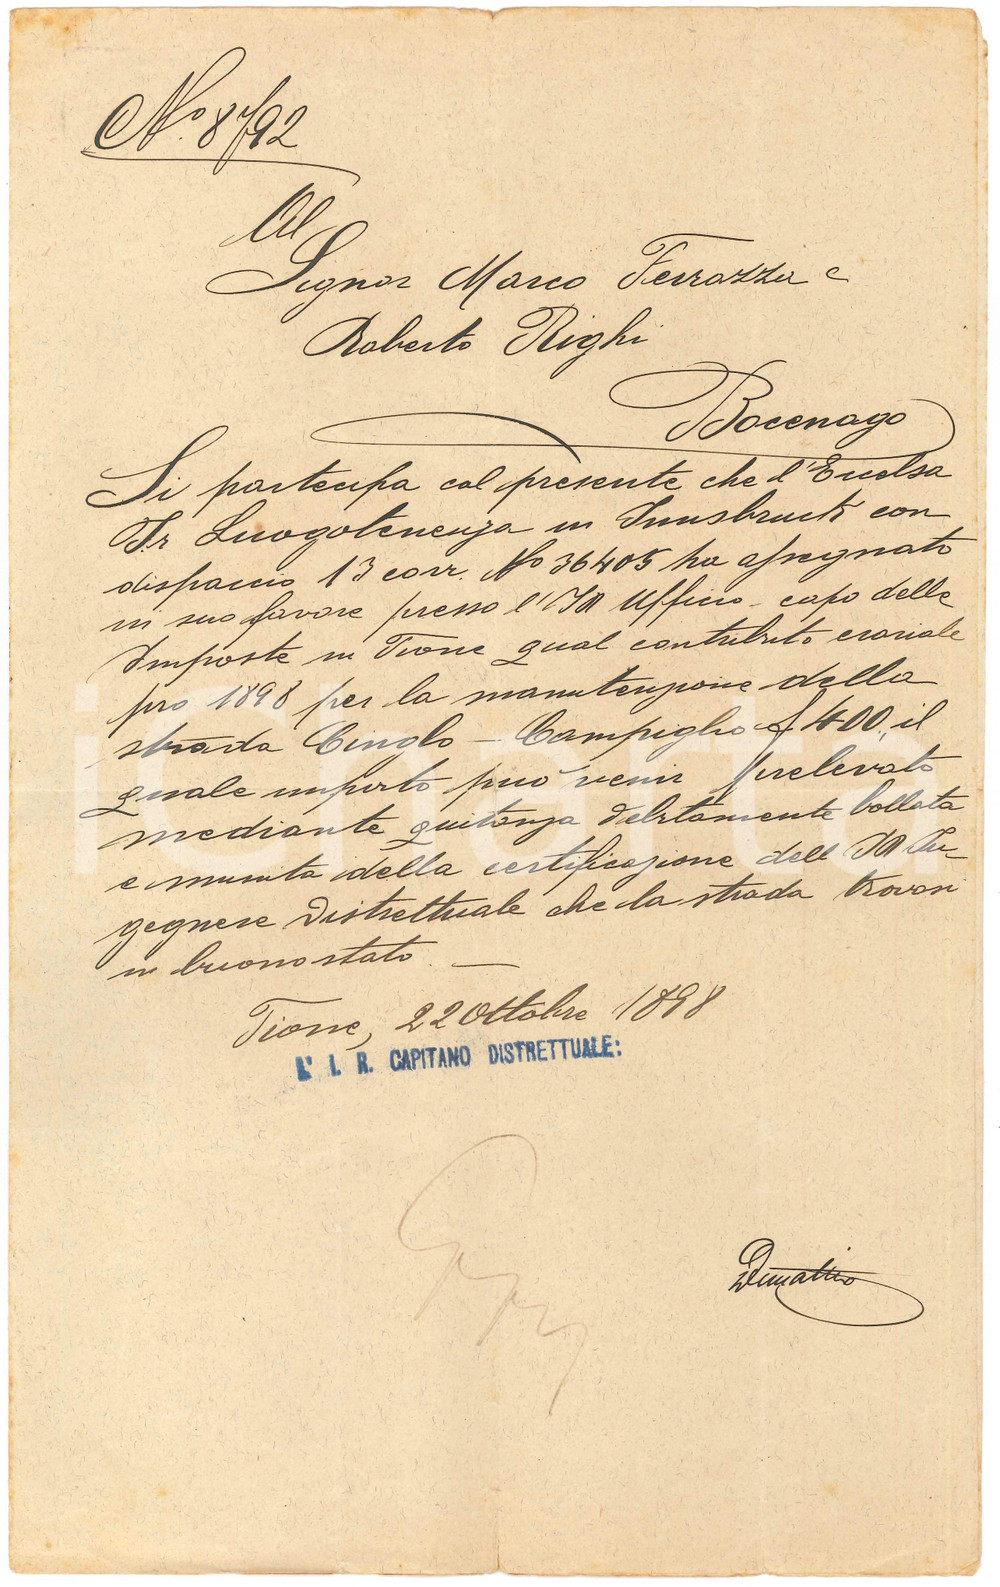 No. 8792
Al
Signor Marco Ferrazza e
Roberto Righi
Bocenago
Si partecipa col presente che l'Eccelsa
I. r. Luogotenenza in Innsbruck con
dispaccio 13 corr. No 36405 ha assegnato
in suo favore presso l'I R Ufficio capo delle
Imposte in Tione qual contributo erariale
pro 1898 per la manutenzione della
strada Cinglo - Campiglio f 400, il
quale importo può venir prelevato
mediante quitanza debitamente bollata
e munita della certificazione dell I R In-
gegnere Distrettuale che la strada trovasi
in buono stato. —
Tione, 22 Ottobre 1898
L' I. R. CAPITANO DISTRETTUALE: